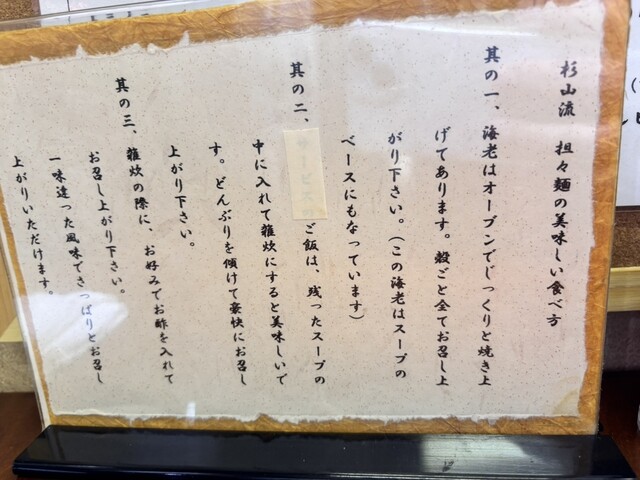 杉山流 担々麺の美味しい食べ方
其の一、海老はオーブンでじっくりと焼き上
げてあります。殻ごと全てお召し上
がり下さい。(この海老はスープの
ベースにもなっています)
其の二、ご飯は、残ったスープの
中に入れて雑炊にすると美味しいで
す。どんぶりを傾けて豪快にお召し
上がり下さい。
其の三、雑炊の際に、お好みでお酢を入れて
お召し上がり下さい。
一味違った風味でさっぱりとお召し
上がりいただけます。